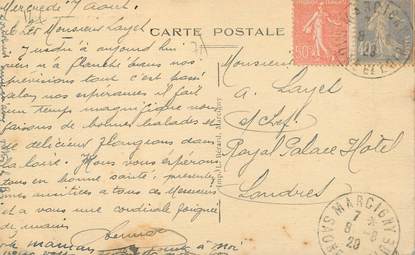 Mercredi 7 Aout.
Monsieur Layet
CARTE POSTALE
aujourd'hui
rien a flanché dans nos
prévisions tout c'est passé
selon nos espérances il fait
un temps magnifique nous
faisons de bonnes balades et
de délicieux plongeons dans
la Loire. Nous vous espérons
tous en bonne santé; présentez
nos amitiés a tous ces Messieurs
et a vous une cordiale poignée
de main
maman
à moi
50c
Monsieur
A. Layet
s/Chef
Royal Palace Hôtel
Londres
Imp. L. Bérard, Marcigny
MARCIGNY
SAONE
7
8
29